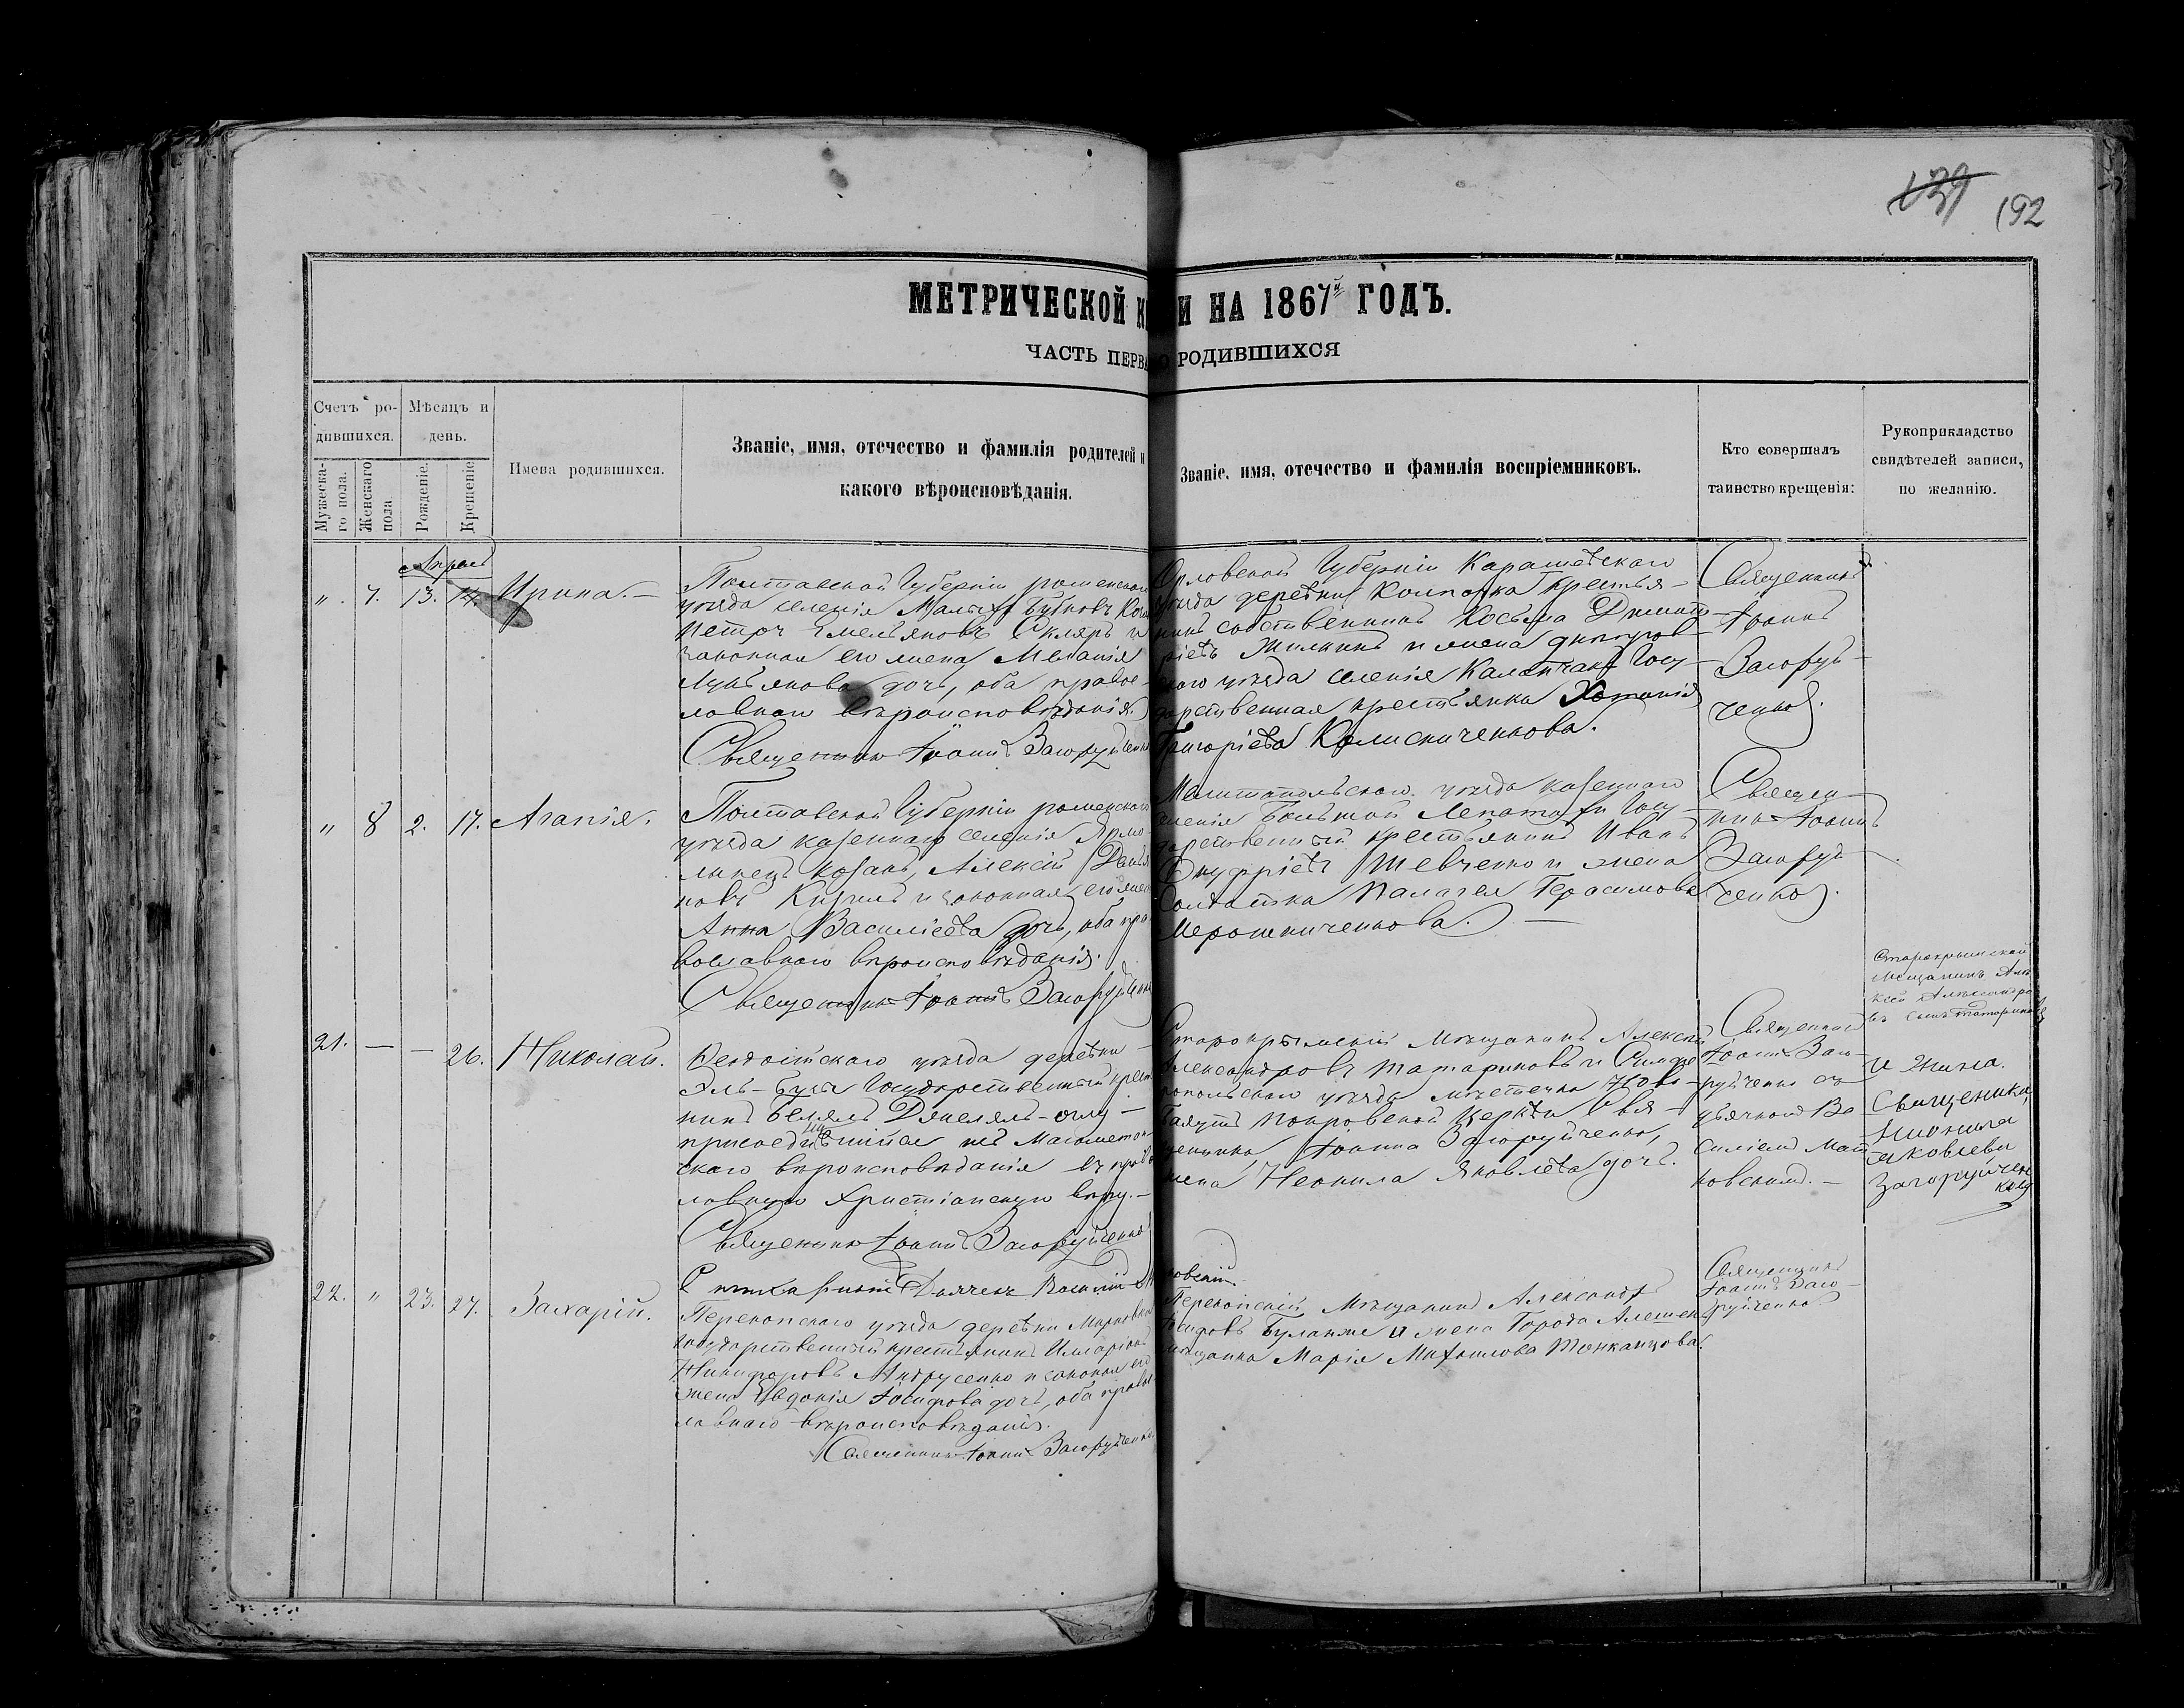 139 192
МЕТРИЧЕСКОЙ К И НА 1867й ГОДЪ.
ЧАСТЬ ПЕРВА О РОДИВШИХСЯ
Счетъ ро-
дившихся.
Мужеска-
го пола.
Женскаго
пола
Мѣсяцъ и
день.
Рожденіе.
Крещеніе
Имена родившихся.
Званіе, имя, отечество и фамилія родителей и
какого вѣроисповѣданія.
Званіе, имя, отечество и фамилія воспріемниковъ.
Кто совершалъ
таинство крещенія:
Рукоприкладство
свидѣтелей записи,
по желанію.
Апрель
„ 7. 13. 14. Ирина.—
Полтавской Губерніи роменскаго
уѣзда селенія Малыхъ Бубновъ Коза
Петръ Емельяновъ Скляръ и
законная его жена Меланія
Лукьянова дочь, оба право-
лавнаго вѣроисповѣданія.
Священникъ Іоаннъ Загоруйченко
Орловской Губерніи Карашевскаго
уѣзда деревни крестья-
нинъ собственникъ Косьма Димит-
ріевъ Жилкинъ и жена днепров-
скаго уѣзда селенія Каланчакъ Госу-
дарственная крестьянка
Григоріева Колисниченкова.
Священникъ
Іоаннъ
Загоруй-
ченко.
„ 8 2. 17. Агапія.
Полтавской Губерніи роменскаго
уѣзда казеннаго селенія Ярмо-
линецъ козакъ, Алексій Демья
новъ и законная его жена
Анна Василіева дочь, оба пра-
вославнаго вѣроисповѣданія.
Священникъ Іоаннъ Загоруйченко
Мелитопольскаго уѣзда казеннаго
селенія Большой Лепатихи Госу-
дарственный крестьянинъ Иванъ
Онуфріевъ Шевченко и жена
Солдатка Палагея Герасимова
Мерошниченкова.—
Священ-
никъ Іоаннъ
Загоруй-
ченко.
21. — — 26. Николай.
Феодосійскаго уѣзда деревни
Эль-Бузы Государственный крест
нинъ Белялъ Джелялъ-оглу—
присоедин шійся изъ Магометан-
скаго вѣроисповѣданія въ право
лавную Христіанскую вѣру.—
Священникъ Іоаннъ Загоруйченко
Старокрымскій Мѣщанинъ Алексій
Александровъ Татариновъ и Симфе
ропольскаго уѣзда мѣстечка
Покровской Церкви Свя-
щенника Іоанна Загоруйченко,
жена Неонила Яковлева дочь.
Священникъ
Іоаннъ Заго-
руйченко съ
дьячкомъ Ва
силіемъ Мат
ковскимъ.—
Старокрымскій
мещанинъ Але
ксей Александро
въ сынъ Татариновъ
и жена
Священика
Нионила
Яковлева
Загоруйчен
кова
22. „ 23. 27. Захарій.
Дьячекъ Василій Мат
ковскій
Перекопскаго уѣзда деревни Марковка
государственный крестьянинъ Илларіонъ
Никифоровъ Андрусенко и законная его
жена Евдокія Іосифова дочь, оба право
лавнаго вѣроисповѣданія.
Священникъ Іоаннъ Загоруйченко
Перекопскій Мѣщанинъ Александръ
Іосифовъ и жена Города Алешекъ
мѣщанка Марія Михайлова
Священникъ
Іоаннъ Заго-
руйченко.